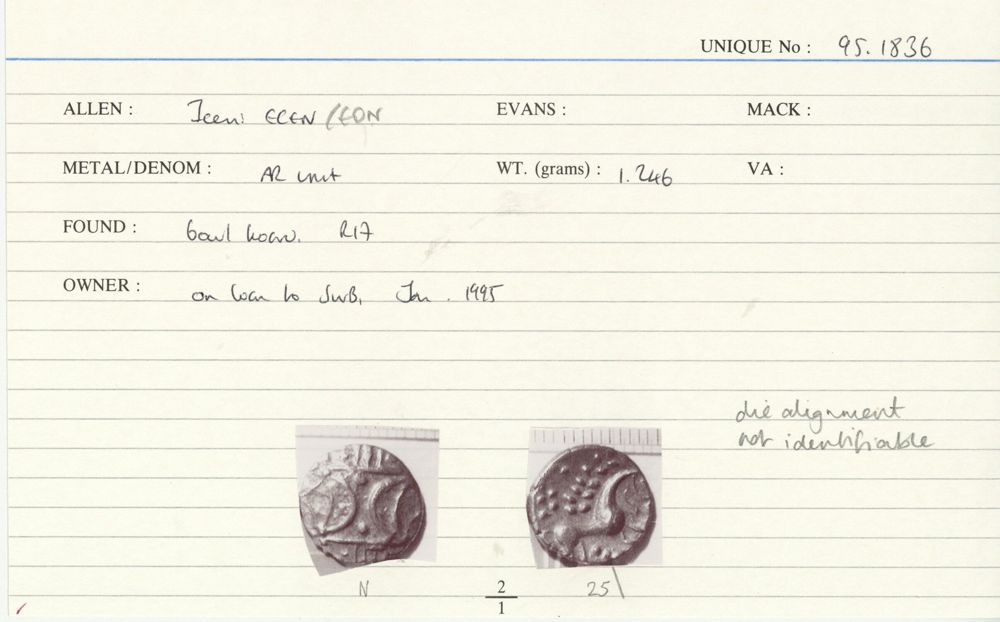 UNIQUE No : 95.1836
ALLEN : Iceni ECEN /EDN EVANS : MACK :
METAL/DENOM : AR unit WT. (grams) : 1.246 VA :
FOUND : bowl hoard. R17
OWNER : on loan to SWB, Jan. 1995
die alignment
not identifiable
N 2/1 251